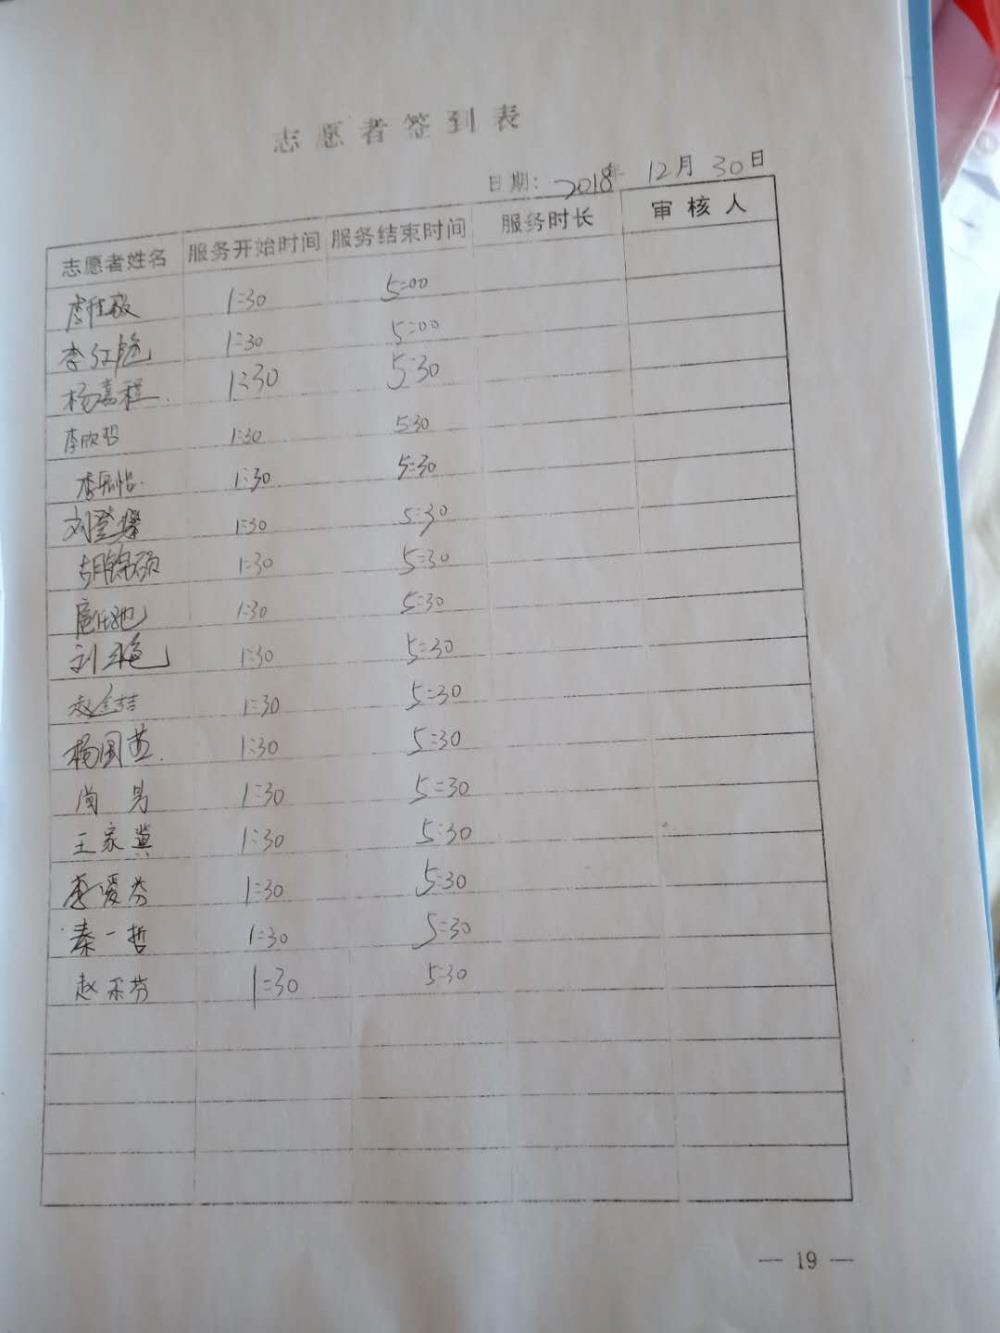 志愿者签到表
日期: 2018年 12月 30日
志愿者姓名 服务开始时间 服务结束时间 服务时长 审核人
1:30 5:00
李红艳 1:30 5:00
杨嘉程. 1:30 5:30
李欣哲 1:30 5:30
1:30 5:30
1:30 5:30
胡锦硕 1:30 5:30
1:30 5:30
1:30 5:30
1:30 5:30
杨国英. 1:30 5:30
尚 男 1:30 5:30
王家冀 1:30 5:30
李爱芬 1:30 5:30
秦一哲 1:30 5:30
1:30 5:30
— 19 —